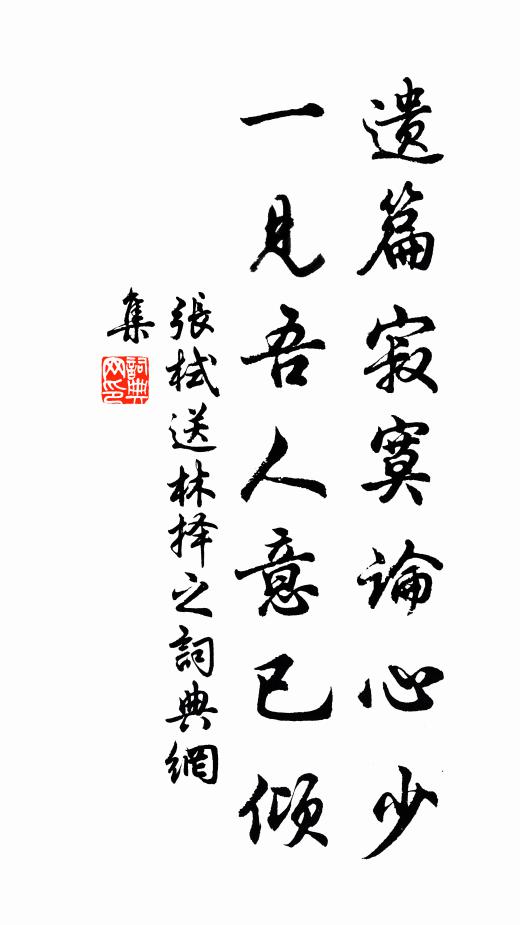 遗篇寂寞論心少
一見吾人意已傾
張栻送林择之詞典網
集
詞典
网印